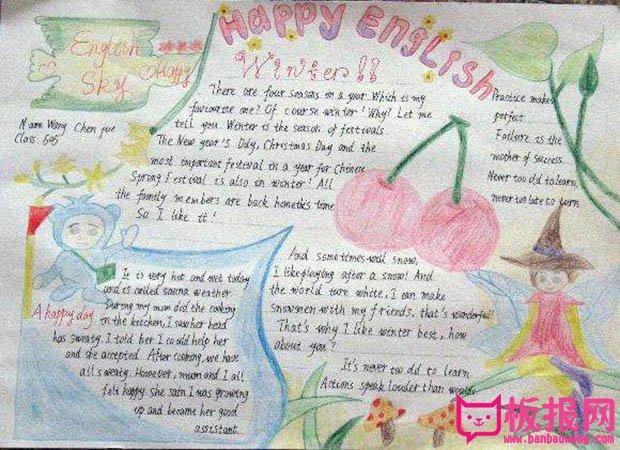 Happy English
English
Sky
Happy
Winter!!
Name Wang Chen yue
Class: 505
There are four seasons in a year. Which is my
favourite one? Of course winter! Why? Let me
tell you. Winter is the season of festivals
The New year's Day, Christmas Day and the
most important festival in a year for Chinese
Spring Festival is also in winter! All
the family members are back home this time
So I like it!
Practice makes
perfect.
Failure is the
mother of success.
Never too old to learn,
never too late to turn
And sometimes will snow,
I like playing after a snow! And
the world turn white, I can make
snowmen with my friends, that's wonderful!
That's why I like winter best, how
about you?
It's never too old to learn
Actions speak louder than words
A happy day
It is very hot and wet today
and is called sauna weather
During my mum did the cooking
in the kitchen, I saw her head
has sweaty. I told her I could help her
and she accepted. After cooking, we have
all sweaty. However, mum and I all
felt happy. She said I was growing
up and became her good
assistant.
板报网
www.banbaowang.com